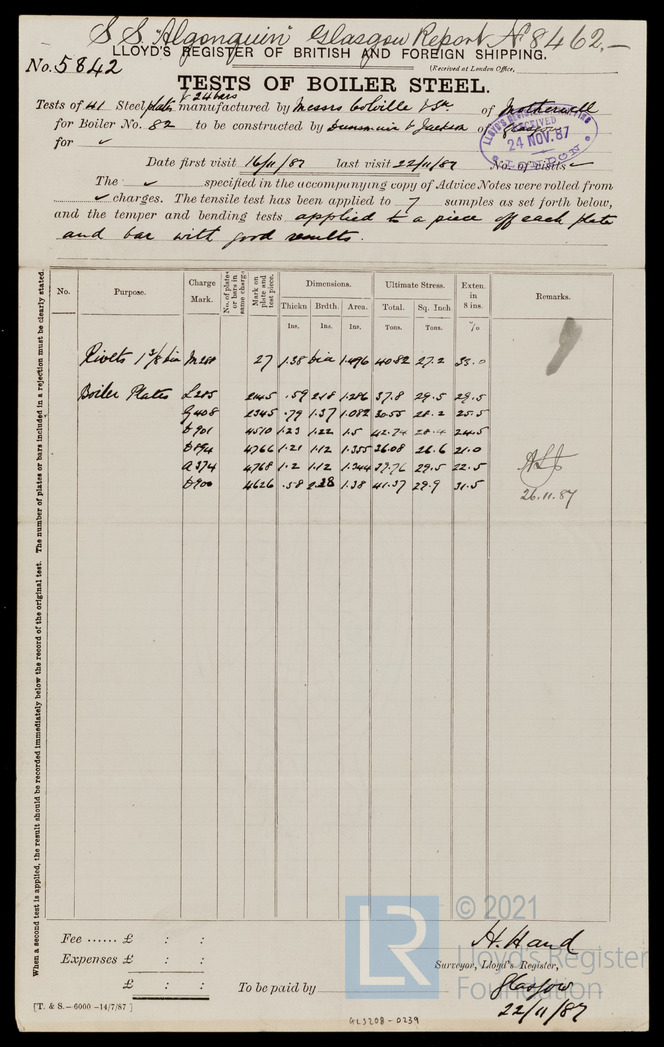 S.S. "Algonquin" Glasgow Report No 8462.—
LLOYD'S REGISTER OF BRITISH AND FOREIGN SHIPPING.
No. 5842
(Received at London Office,
TESTS OF BOILER STEEL.
& 24 bars
Tests of 41 Steel plates manufactured by Messrs Colville & Sn of Motherwell
for Boiler No. 82 to be constructed by Dunsmuir & Jackson of Glasgow
for ✓
LLOYD'S REGISTER
RECEIVED
24 NOV. 87
LONDON
Date first visit 16/11/87 last visit 22/11/87 No. of visits
The ✓ specified in the accompanying copy of Advice Notes were rolled from
✓ charges. The tensile test has been applied to 7 samples as set forth below,
and the temper and bending tests applied to a piece off each plate
and bar with good results.
When a second test is applied, the result should be recorded immediately below the record of the original test. The number of plates or bars included in a rejection must be clearly stated.
No. Purpose. Charge Mark. No. of plates or bars in same charge Mark on plate and test piece. Dimensions. Ultimate Stress. Exten. in 8 ins. Remarks.
Thickn Brdth. Area. Total. Sq. Inch
Ins. Ins. Ins. Tons. Tons. %
Rivets 1 3/8 dia M281 27 1.38 dia 1.496 40.82 27.2 33.0
Boiler Plates L205 2145 .59 2.18 1.286 37.8 29.5 29.5
G408 2345 .79 1.37 1.082 30.55 28.2 25.5
D901 4510 1.23 1.22 1.5 42.74 28.4 24.5
D894 4766 1.21 1.12 1.355 36.08 26.6 21.0
A374 4768 1.2 1.12 1.344 39.76 29.5 22.5
D900 4626 .58 2.38 1.38 41.37 29.9 31.5
26.11.87
© 2021
LR
Lloyd's Register
Foundation
Fee ...... £ : :
Expenses £ : :
£ : :
H. Hand
Surveyor, Lloyd's Register,
To be paid by
Glasgow
22/11/87
[T. & S.—6000—14/7/87]
GLS208-0239